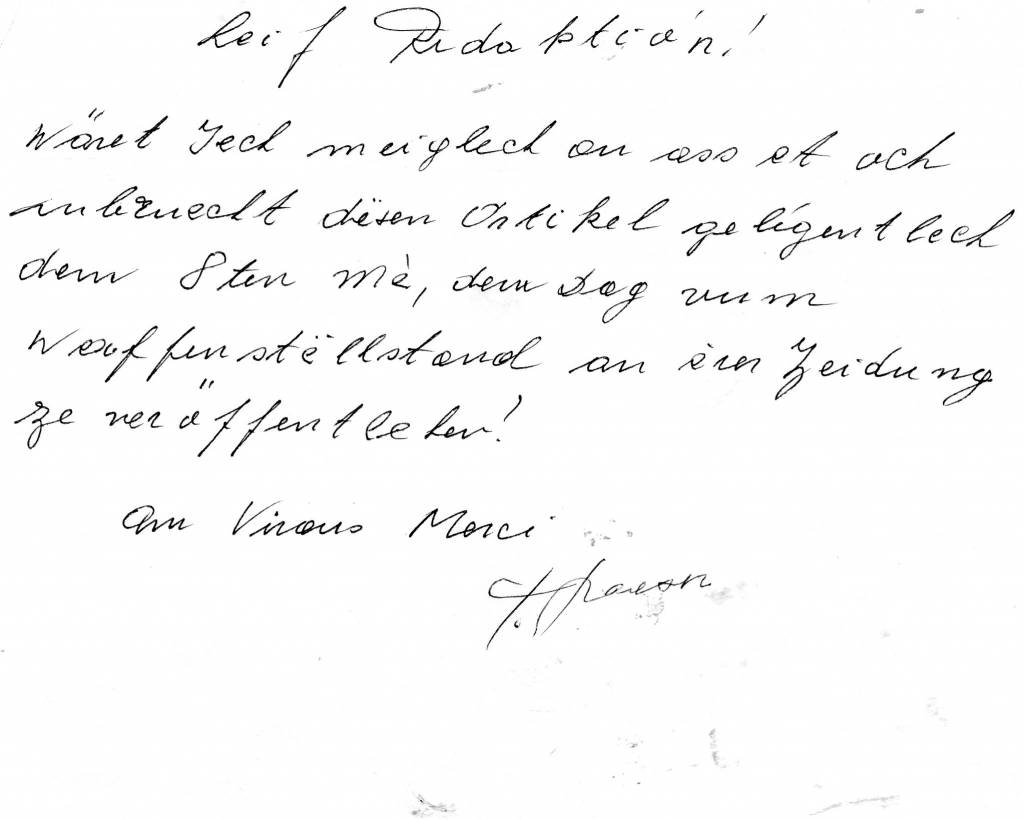 Leif Redaktión!
Wäret Iech meiglech an ass et och
ubruecht dësen Artikel gelégentlech
dem 8ten Mè, dem Dag vum
Waaffenstëllstand an èrer Zeidung
ze veröffentlechen!
Am Viraus Merci